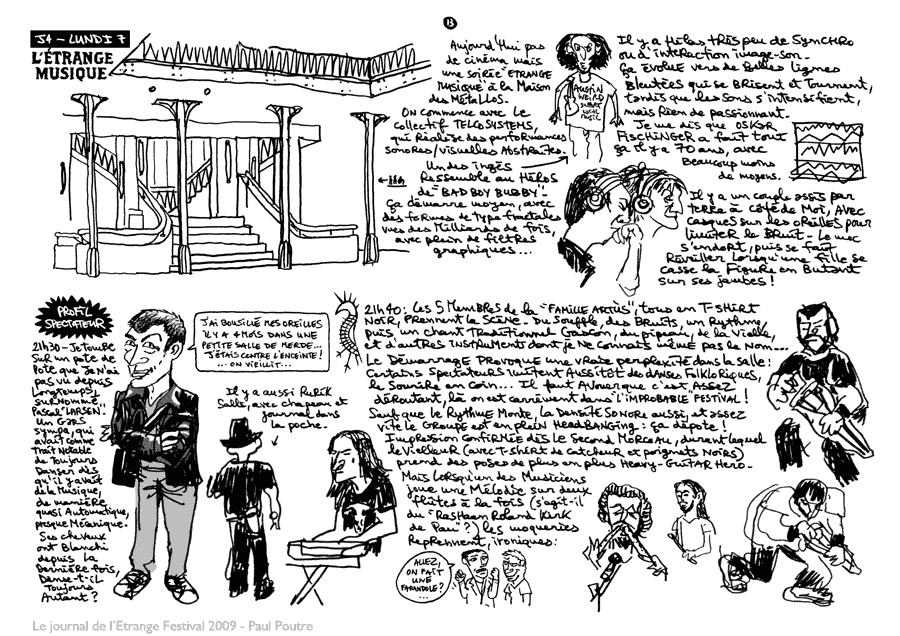 13
J4 - LUNDI 7
L'ÉTRANGE
MUSIQUE
Aujourd'hui pas
de cinéma mais
une soirée "ETRANGE
MUSIQUE" à la Maison
des Métallos.
On commence avec le
collectif TELEOSYSTEMS,
qui réalise des performances
sonores/visuelles abstraites.
Un des ingés
ressemble au héros
de "BAD BOY BUBBY".
Ça démarre moyen, avec
des formes de type fractales
vues des milliards de fois,
avec plein de filtres
graphiques...
AUSTIN
WEIRD
Il y a hélas très peu de synchro
ou d'interaction image-son.
Ça évolue vers de belles lignes
bleutées qui se brisent et tournent,
tandis que les sons s'intensifient,
mais rien de passionnant.
Je me dis que OSKAR
FISCHINGER a fait tout
ça il y a 70 ans, avec
beaucoup moins
de moyens.
Il y a un couple assis par
terre à côté de moi, avec
casques sur les oreilles pour
limiter le bruit. Le mec
s'endort, puis se fait
réveiller lorsqu'une fille se
casse la figure en butant
sur ses jambes!
PROFIL
SPECTATEUR
21H30 - Je tombe
sur un pote de
pote que je n'ai
pas vu depuis
longtemps,
surnommé
Pascal "LARSEN".
Un gars
sympa, qui
avait comme
trait notable
de toujours
danser dès
qu'il y avait
de la musique,
de manière
quasi automatique,
presque mécanique.
Ses cheveux
ont blanchi
depuis la
dernière fois,
danse-t-il
toujours
autant?
J'AI BOUSILLÉ MES OREILLES
IL Y A 4 MOIS DANS UNE
PETITE SALLE DE MERDE...
J'ÉTAIS CONTRE L'ENCEINTE!
... ON VIEILLIT...
Il y a aussi Rurik
Sallé, avec chapeau et
journal dans
la poche.
21H40: Les 5 membres de la "FAMILLE ARTÙS", tous en T-shirt
noir, prennent la scène. Du souffle, des bruits, un rythme,
puis un chant traditionnel gascon, du pipeau, de la vielle,
et d'autres instruments dont je ne connais même pas le nom...
Le démarrage provoque une vraie perplexité dans la salle:
certains spectateurs imitent aussitôt des danses folkloriques,
le sourire en coin... Il faut avouer que c'est assez
déroutant, là on est carrément dans "L'IMPROBABLE FESTIVAL!
Sauf que le rythme monte, la densité sonore aussi, et assez
vite le groupe est en plein headbanging: ça dépote!
Impression confirmée dès le second morceau, durant lequel
le vielleur (avec T-shirt de catcheur et poignets noirs)
prend des poses de plus en plus heavy-guitar hero.
Mais lorsqu'un des musiciens
joue une mélodie sur deux
flûtes à la fois (s'agit-il
du "Rashaan Roland Kirk
de Pau"?) les moqueries
reprennent, ironiques:
ALLEZ,
ON FAIT
UNE
FARANDOLE?
Le journal de l'Etrange Festival 2009 - Paul Poutre